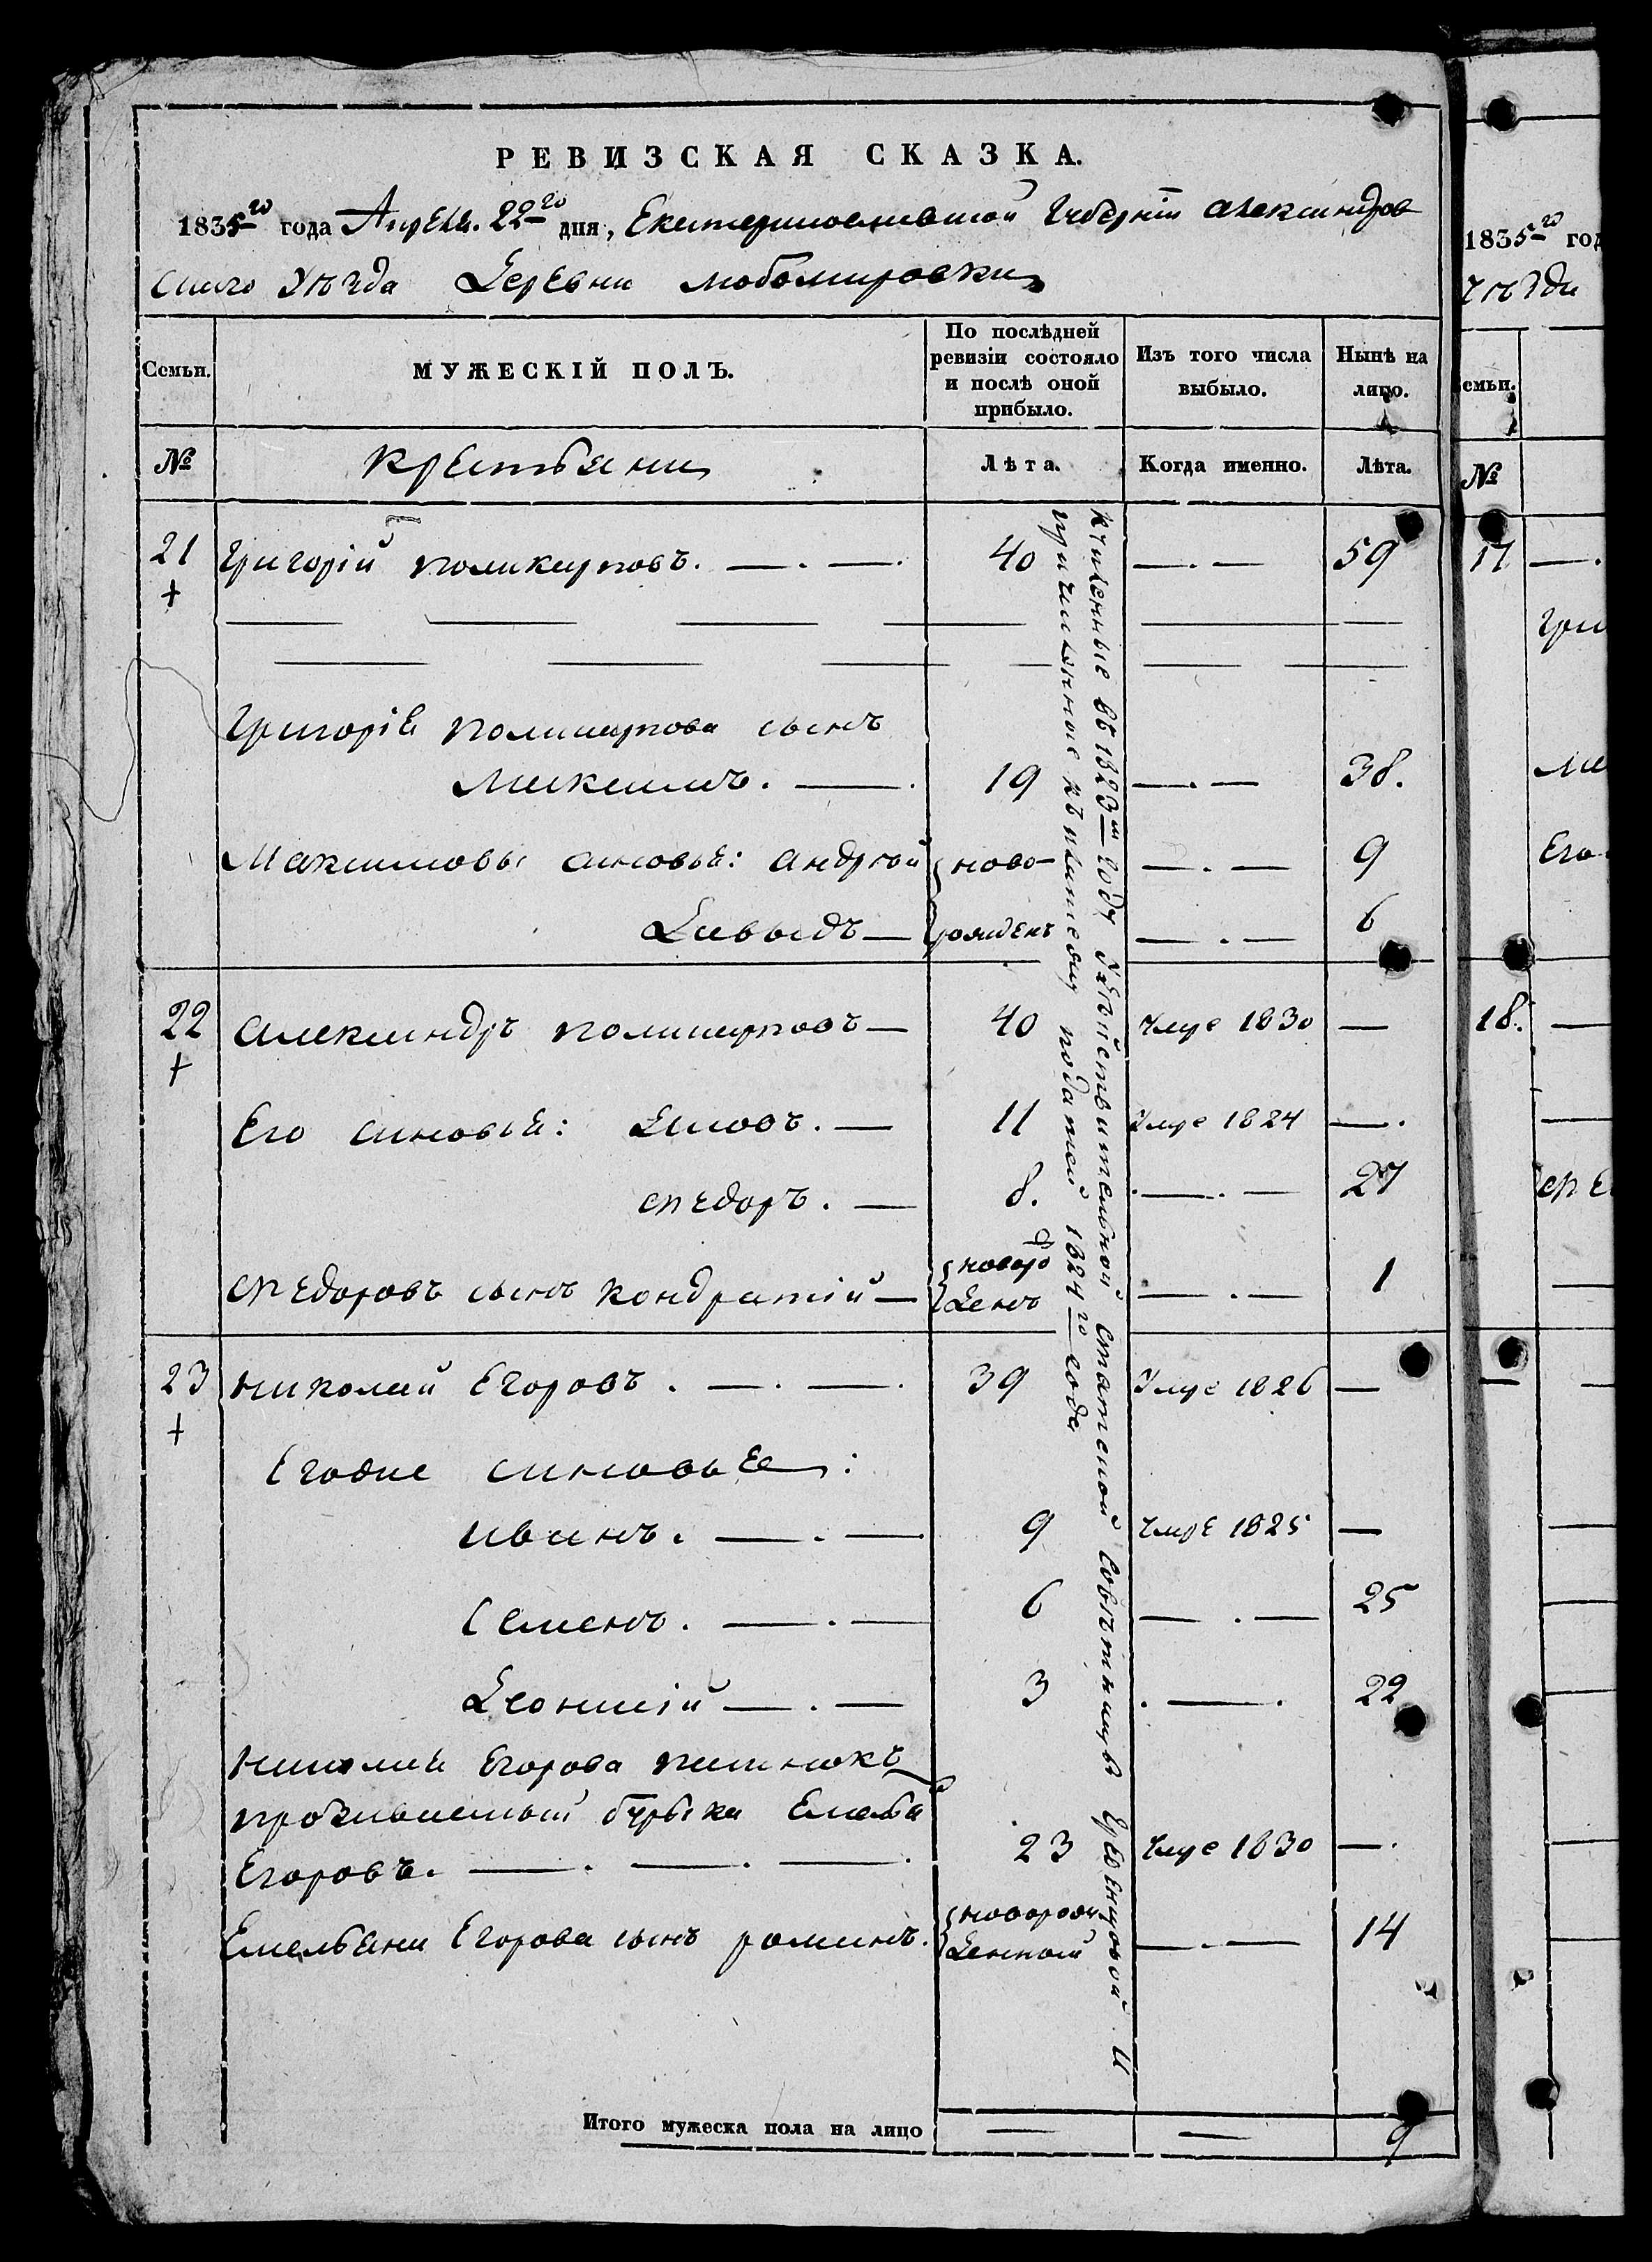 РЕВИЗСКАЯ СКАЗКА.
1835го года Апреля. 22го дня, Екатеринославской Губернии Александров
скаго Уѣзда Деревни Любомировки
Семьи.
МУЖЕСКІЙ ПОЛЪ.
По послѣдней ревизіи состояло и послѣ оной прибыло.
Изъ того числа выбыло.
Нынѣ на лицо.
№ Крестьяни Лѣта. Когда именно. Лѣта.
21 Григорій Поликарповъ. — . — . 40 — . — 59
+
Григорія Поликарпова сынъ
Максимъ. — . 19 — . — 38.
Максимовы синовья: Андрей { ново- — . — 9
Давыдъ — { рожден — . — 6
22 Александръ Поликарповъ — 40 Умре 1830 —
+
Его синовья: Яковъ. — 11 Умре 1824 — .
Федоръ. — 8. . — . — 27
Федоровъ сынъ Кондратій — { новорож
{ денъ — . — 1
23 Николай Егоровъ . — . — . 39 Умре 1826 —
+
Егоже синовья :
Иванъ. — . — 9 Умре 1825 —
Семенъ. — . — 6 — . — 25
Леонтій — . — 3 . — . 22
Николая Егорова
Емельянъ
Егоровъ. — . — . — . 23 Умре 1830 — .
Емельяна Егорова сынъ Романъ. { новорож
{ денный — . — 14
купленные въ 1823м году Действительной статской Советницы И
причисленные къ платежу подател 1824го года
Итого мужеска пола на лицо — — 9
1835го год
Уѣзда
Семьи.
№
17 — .
Гри
Ма
Его
18. —
Фе